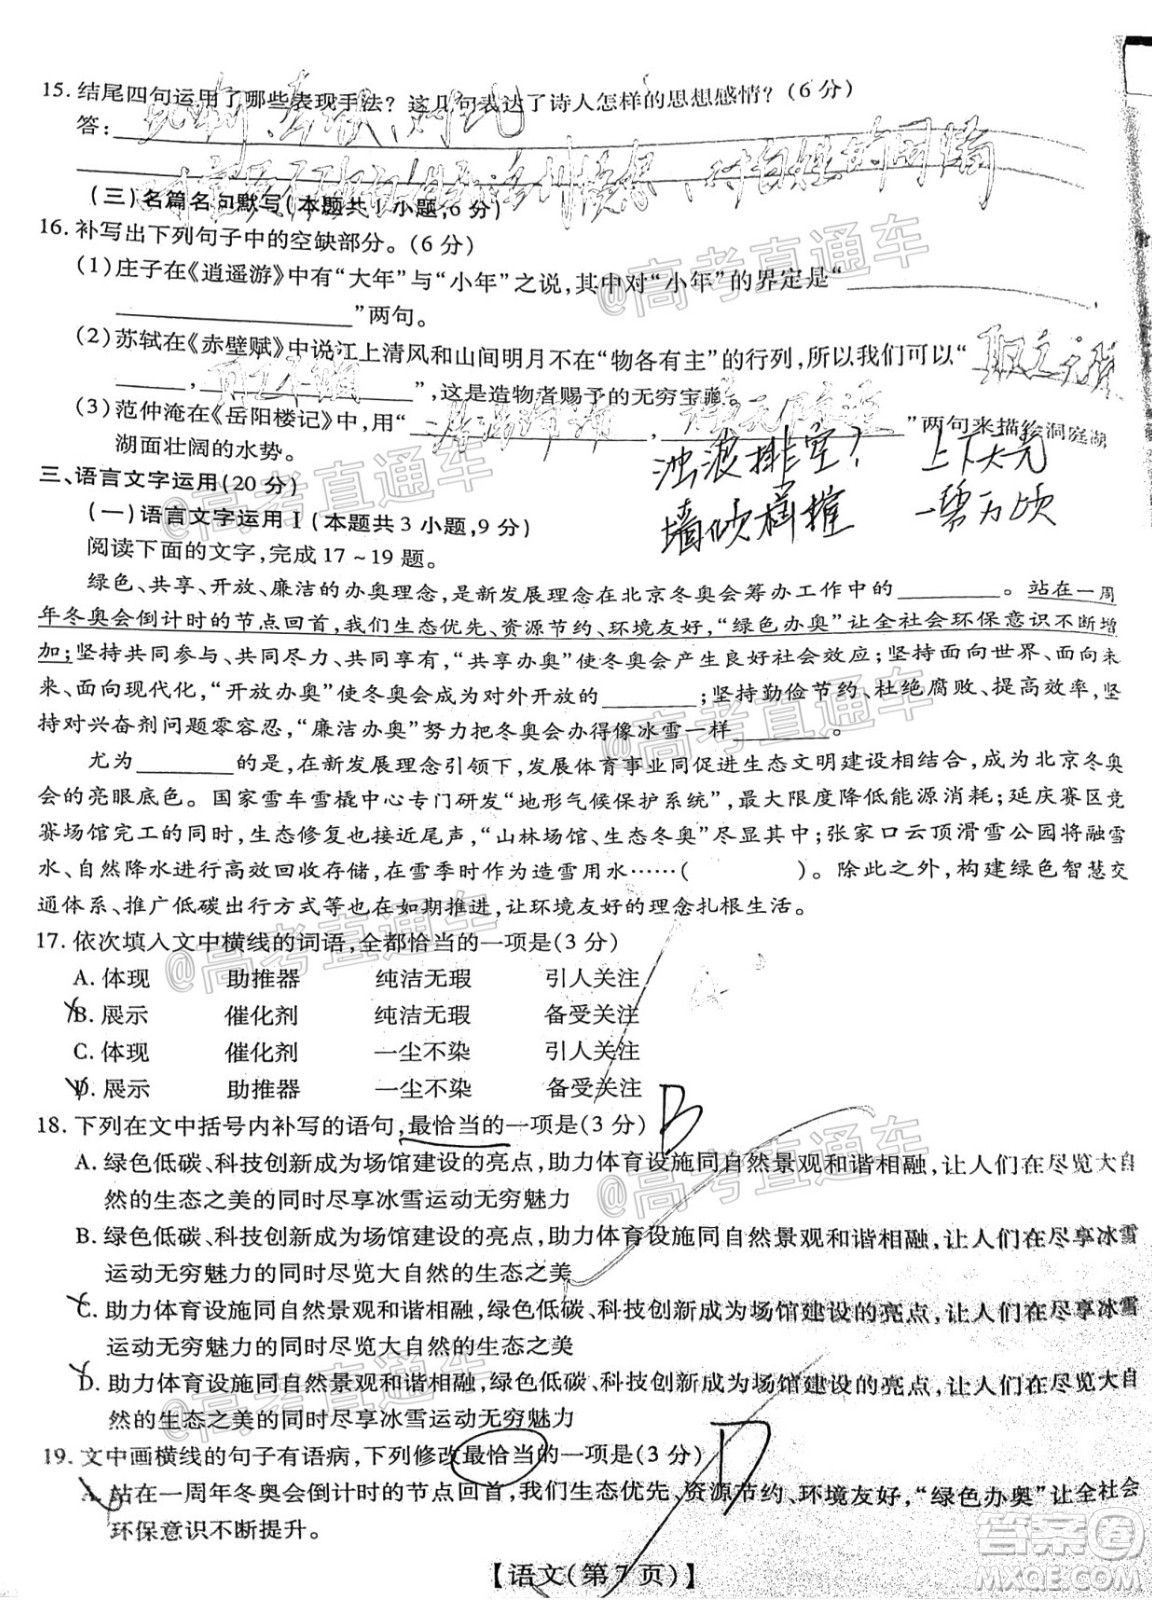 15. 结尾四句运用了哪些表现手法？这几句表达了诗人怎样的思想感情？(6分)
答：
(三)名篇名句默写(本题共1小题,6分)
16. 补写出下列句子中的空缺部分。(6分)
(1)庄子在《逍遥游》中有“大年”与“小年”之说,其中对“小年”的界定是“__________,
__________”两句。
(2)苏轼在《赤壁赋》中说江上清风和山间明月不在“物各有主”的行列,所以我们可以“取之无禁
______,__________”,这是造物者赐予的无穷宝藏。
(3)范仲淹在《岳阳楼记》中,用“__________,__________”两句来描绘洞庭湖
湖面壮阔的水势。
浊浪排空？ 上下天光
樯倾楫摧 一碧万顷
三、语言文字运用(20分)
(一)语言文字运用Ⅰ(本题共3小题,9分)
阅读下面的文字,完成17～19题。
绿色、共享、开放、廉洁的办奥理念,是新发展理念在北京冬奥会筹办工作中的________。站在一周
年冬奥会倒计时的节点回首,我们生态优先、资源节约、环境友好,“绿色办奥”让全社会环保意识不断增
加;坚持共同参与、共同尽力、共同享有,“共享办奥”使冬奥会产生良好社会效应;坚持面向世界、面向未
来、面向现代化,“开放办奥”使冬奥会成为对外开放的________;坚持勤俭节约、杜绝腐败、提高效率,坚
持对兴奋剂问题零容忍,“廉洁办奥”努力把冬奥会办得像冰雪一样________。
尤为________的是,在新发展理念引领下,发展体育事业同促进生态文明建设结合,成为北京冬奥
会的亮眼底色。国家雪车雪橇中心专门研发“地形气候保护系统”,最大限度降低能源消耗;延庆赛区竞
赛场馆完工的同时,生态修复也接近尾声,“山林场馆、生态冬奥”尽显其中;张家口云顶滑雪公园将融雪
水、自然降水进行高效回收存储,在雪季时作为造雪用水……(        )。除此之外,构建绿色智慧交
通体系、推广低碳出行方式等也在如期推进,让环境友好的理念扎根生活。
17. 依次填入文中横线的词语,全都恰当的一项是(3分)
A. 体现 助推器 纯洁无瑕 引人关注
B. 展示 催化剂 纯洁无瑕 备受关注
C. 体现 催化剂 一尘不染 引人关注
D. 展示 助推器 一尘不染 备受关注
18. 下列在文中括号内补写的语句,最恰当的一项是(3分) B
A. 绿色低碳、科技创新成为场馆建设的亮点,助力体育设施同自然景观和谐相融,让人们在尽览大自
然的生态之美的同时尽享冰雪运动无穷魅力
B. 绿色低碳、科技创新成为场馆建设的亮点,助力体育设施同自然景观和谐相融,让人们在尽享冰雪
运动无穷魅力的同时尽览大自然的生态之美
C. 助力体育设施同自然景观和谐相融,绿色低碳、科技创新成为场馆建设的亮点,让人们在尽享冰雪
运动无穷魅力的同时尽览大自然的生态之美
D. 助力体育设施同自然景观和谐相融,绿色低碳、科技创新成为场馆建设的亮点,让人们在尽览大自
然的生态之美的同时尽享冰雪运动无穷魅力
19. 文中画横线的句子有语病,下列修改最恰当的一项是(3分) D
A. 站在一周年冬奥会倒计时的节点回首,我们生态优先、资源节约、环境友好,“绿色办奥”让全社会
环保意识不断提升。
【语文(第7页)】
@高考直通车
@高考直通车
@高考直通车
@高考直通车
@高考直通车
@高考直通车
答案圈
MXQE.COM